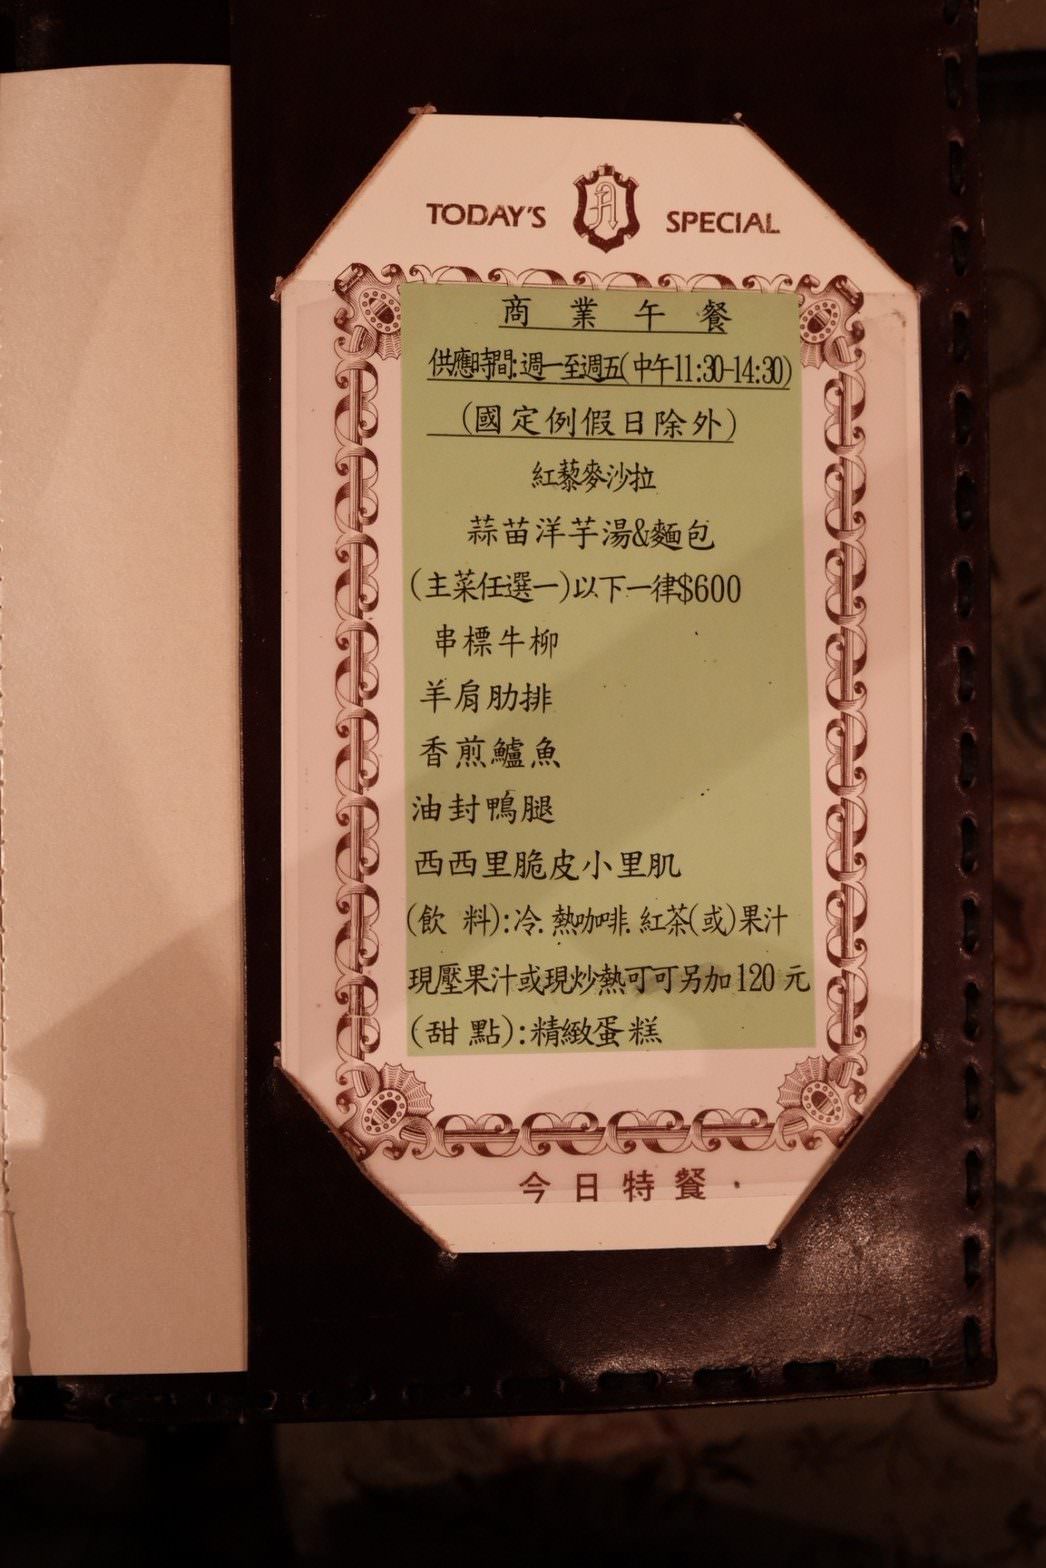 TODAY'S A SPECIAL
商業午餐
供應時間:週一至週五(中午11:30-14:30)
(國定例假日除外)
紅藜麥沙拉
蒜苗洋芋湯&麵包
(主菜任選一)以下一律$600
串標牛柳
羊肩肋排
香煎鱸魚
油封鴨腿
西西里脆皮小里肌
(飲 料):冷.熱咖啡.紅茶(或)果汁
現壓果汁或現炒熱可可另加120元
(甜點):精緻蛋糕
今日特餐